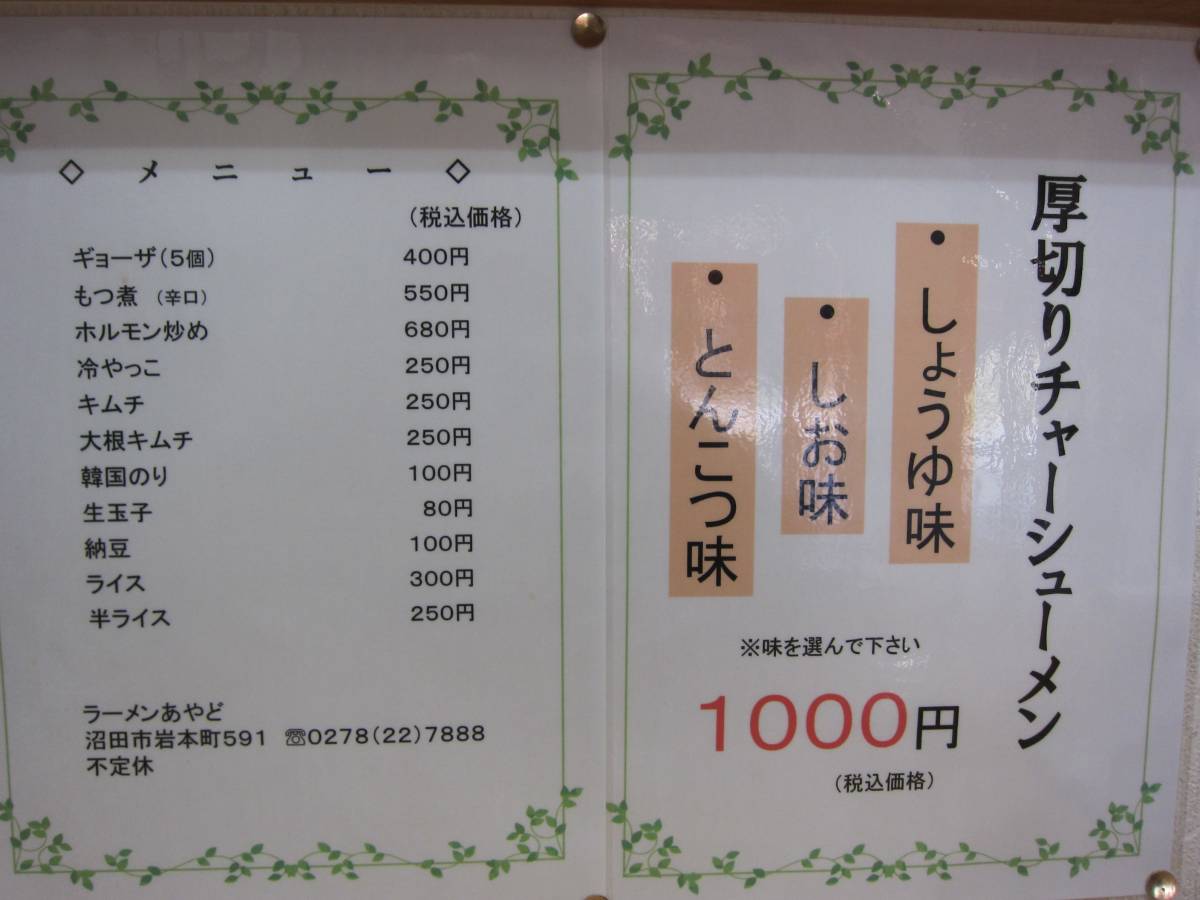 ◇ メニュー ◇
(税込価格)
ギョーザ(5個) 400円
もつ煮 (辛口) 550円
ホルモン炒め 680円
冷やっこ 250円
キムチ 250円
大根キムチ 250円
韓国のり 100円
生玉子 80円
納豆 100円
ライス 300円
半ライス 250円
ラーメンあやど
沼田市岩本町591 ☏0278(22)7888
不定休
厚切りチャーシューメン
・しょうゆ味
・しお味
・とんこつ味
※味を選んで下さい
1000円
(税込価格)